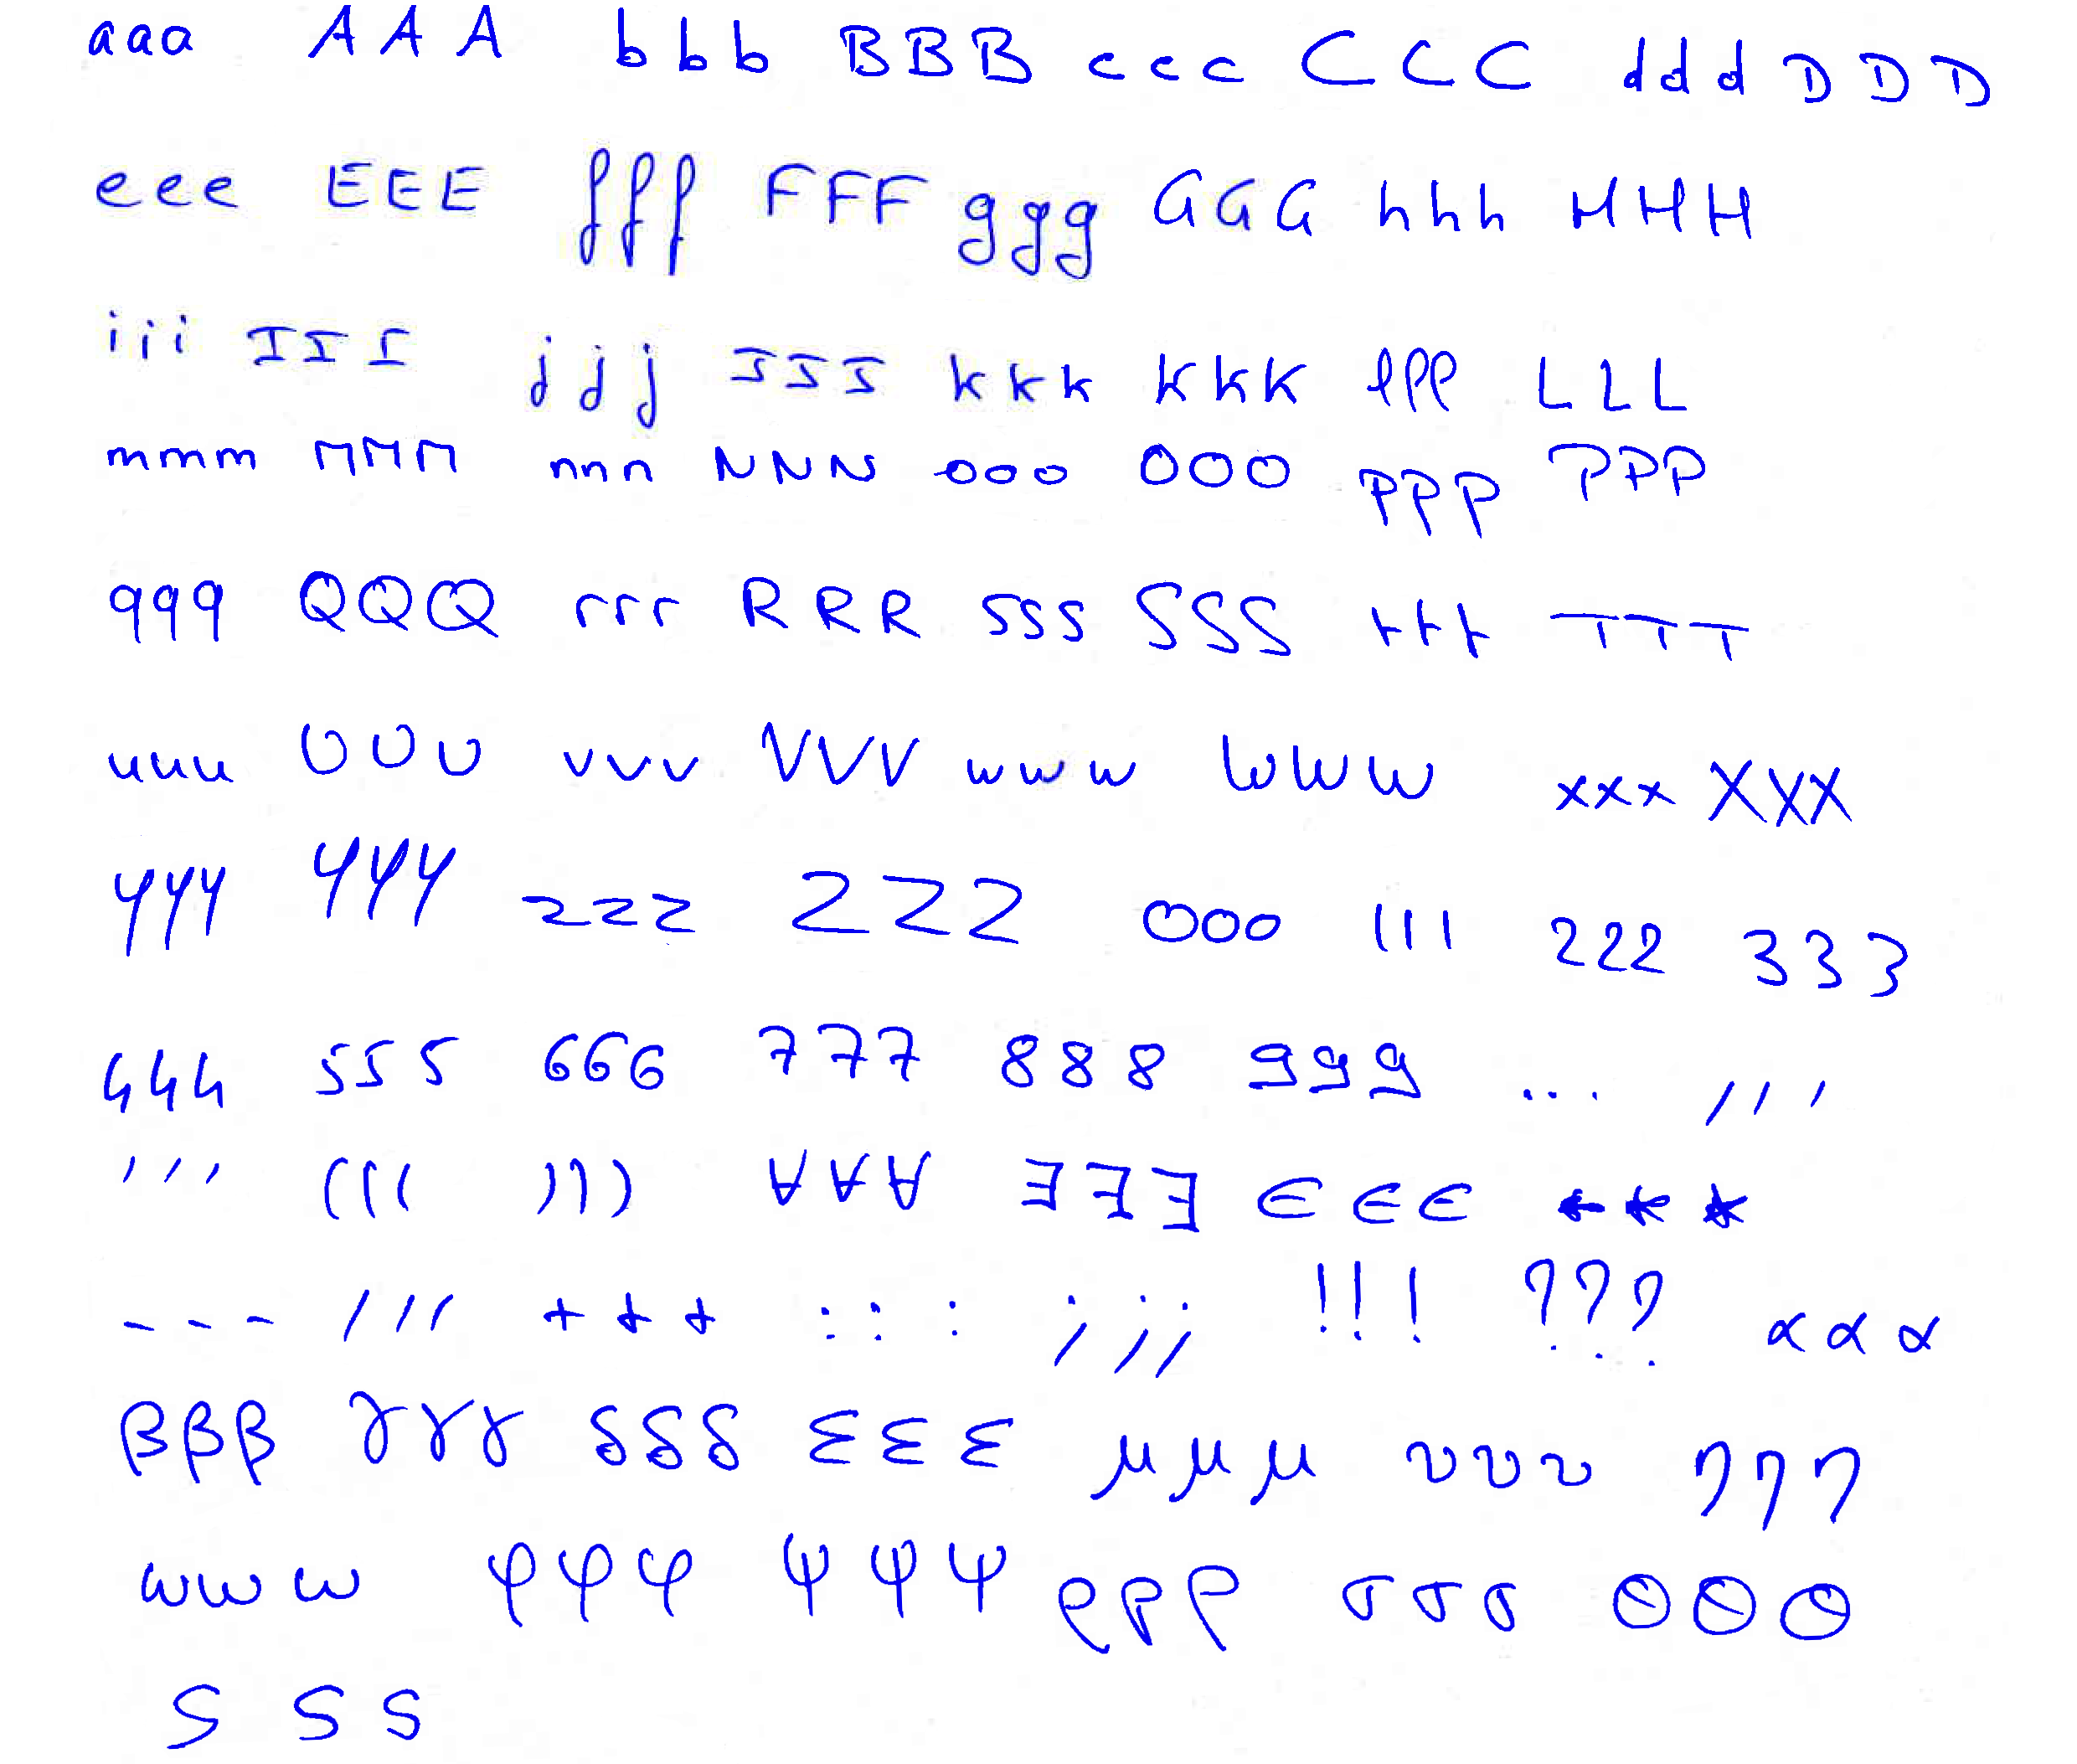 aaa AAA bbb BBB ccc CCC ddd DDD
eee EEE fff FFF ggg GGG hhh HHH
iii III jjj JJJ kkk KKK lll LLL
mmm MMM nnn NNN ooo OOO ppp PPP
qqq QQQ rrr RRR sss SSS ttt TTT
uuu UUU vvv VVV www WWW xxx XXX
yyy YYY zzz ZZZ 000 111 222 333
444 555 666 777 888 999 ... ,,,
''' ((( ))) ∀∀∀ ∃∃∃ ∈∈∈ ***
--- /// +++ ::: ;;; !!! ??? ααα
βββ γγγ δδδ εεε μμμ υυυ ηηη
ωωω φφφ ψψψ ρρρ σσσ θθθ
ς ς ς